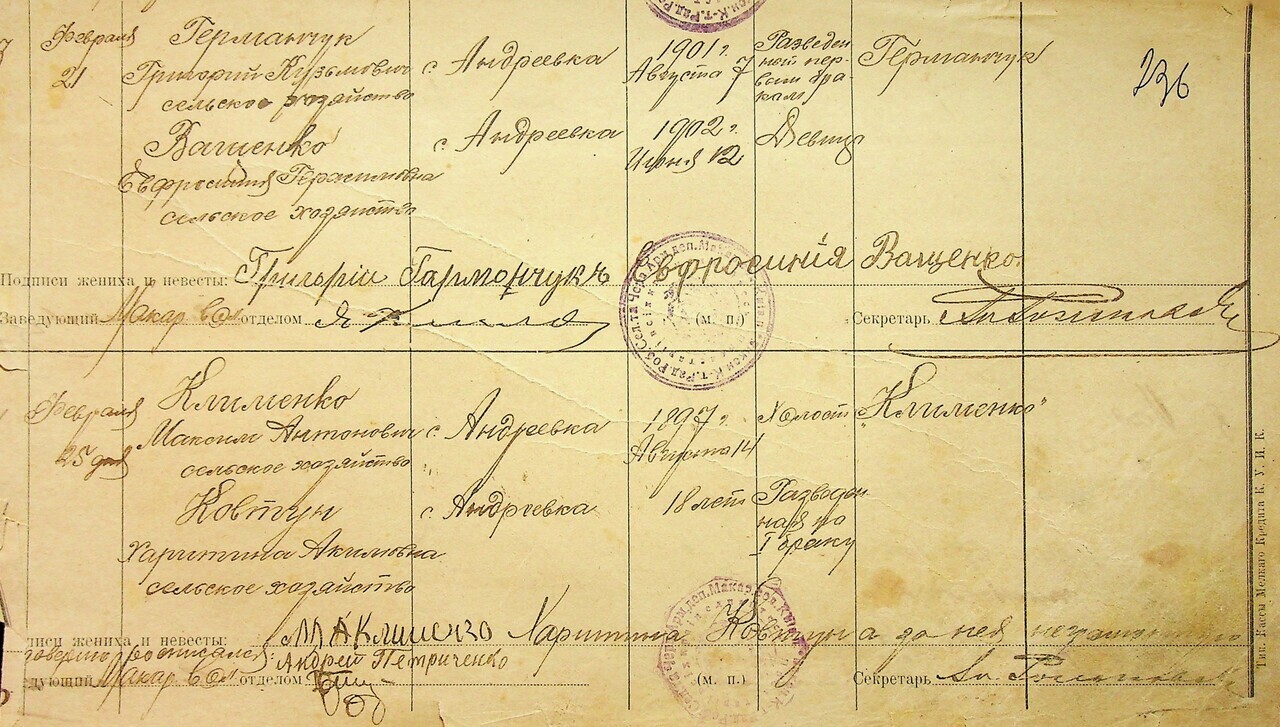 Февраля
21
Германчук
Григорий Кузьмович
сельское хозяйство
с. Андреевка
1901 г.
Августа 7
Разведен
ный пер-
вым бра-
ком
Германчук
236
Ващенко
Евфросиния Герасимовна
сельское хозяйство
с. Андреевка
1902 г.
Июня 12
Девица
Подписи жениха и невесты: Григорій Гармончукъ Ефросинія Ващенко
Заведующий Макар вол отделом (м. п.) Секретарь
Февраля
25 дня
Клименко
Максим Антонович
сельское хозяйство
с. Андреевка
1897 г.
Августа 14
Холост
"Клименко"
Ковтун
Харитина Акимовна
сельское хозяйство
с. Андреевка
18 лет
Разведен
ная по
I браку
писи жениха и невесты: М А Клименко Харитина Ковтун а за нея неграмотную
росписался Андрей Петриченко
едующий Макар вол отделом (м. п.) Секретарь
Тип. Кассы Мелкаго Кредита К. У. И. К.